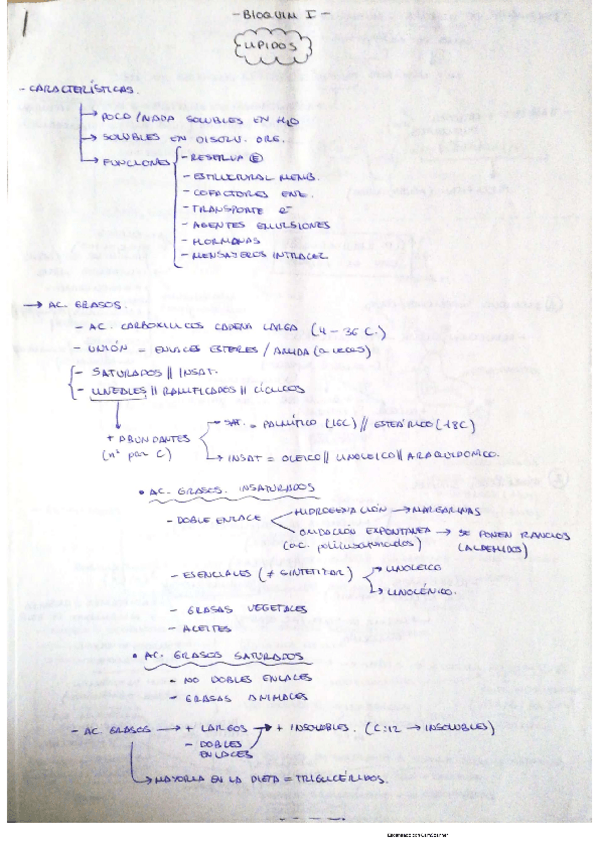 1
- BIOQUIM I -
LIPIDOS
- CARACTERÍSTICAS.
→ POCO/NADA SOLUBLES EN H2O
→ SOLUBLES EN DISOLV. ORG.
→ FUNCIONES
- RESERVA E
- ESTRUCTURAL MEMB.
- COFACTORES ENZ.
- TRANSPORTE e-
- AGENTES EMULSIONES
- HORMONAS
- MENSAJEROS INTRACEL
→ AC. GRASOS.
- AC. CARBOXILICOS CADENA LARGA (4 - 36 C.)
- UNIÓN = ENLACES ESTERES / AMIDA (a veces)
- SATURADOS || INSAT.
- LINEALES || RAMIFICADOS || CÍCLICOS
+ ABUNDANTES (nº par C)
→ SAT. = PALMÍTICO (16C) // ESTEÁRICO (18C)
→ INSAT = OLEICO || LINOLEICO || ARAQUIDONICO.
• AC. GRASOS INSATURADOS
- DOBLE ENLACE
HIDROGENACIÓN → MARGARINAS
OXIDACIÓN EXPONTANEA → SE PONEN RANCIOS
(a.c. poliinsaturados) (ALDEHIDOS)
- ESENCIALES (≠ SINTETIZAR)
→ LINOLEICO
→ LINOLÉNICO.
- GRASAS VEGETALES
- ACEITES
• AC. GRASOS SATURADOS
- NO DOBLES ENLACES
- GRASAS ANIMALES
- AC. GRASOS → + LARGOS → + INSOLUBLES. (C:12 → INSOLUBLES)
- DOBLES ENLACES
→ MAYORIA EN LA DIETA = TRIGLICÉRIDOS.
Escaneado con CamScanner